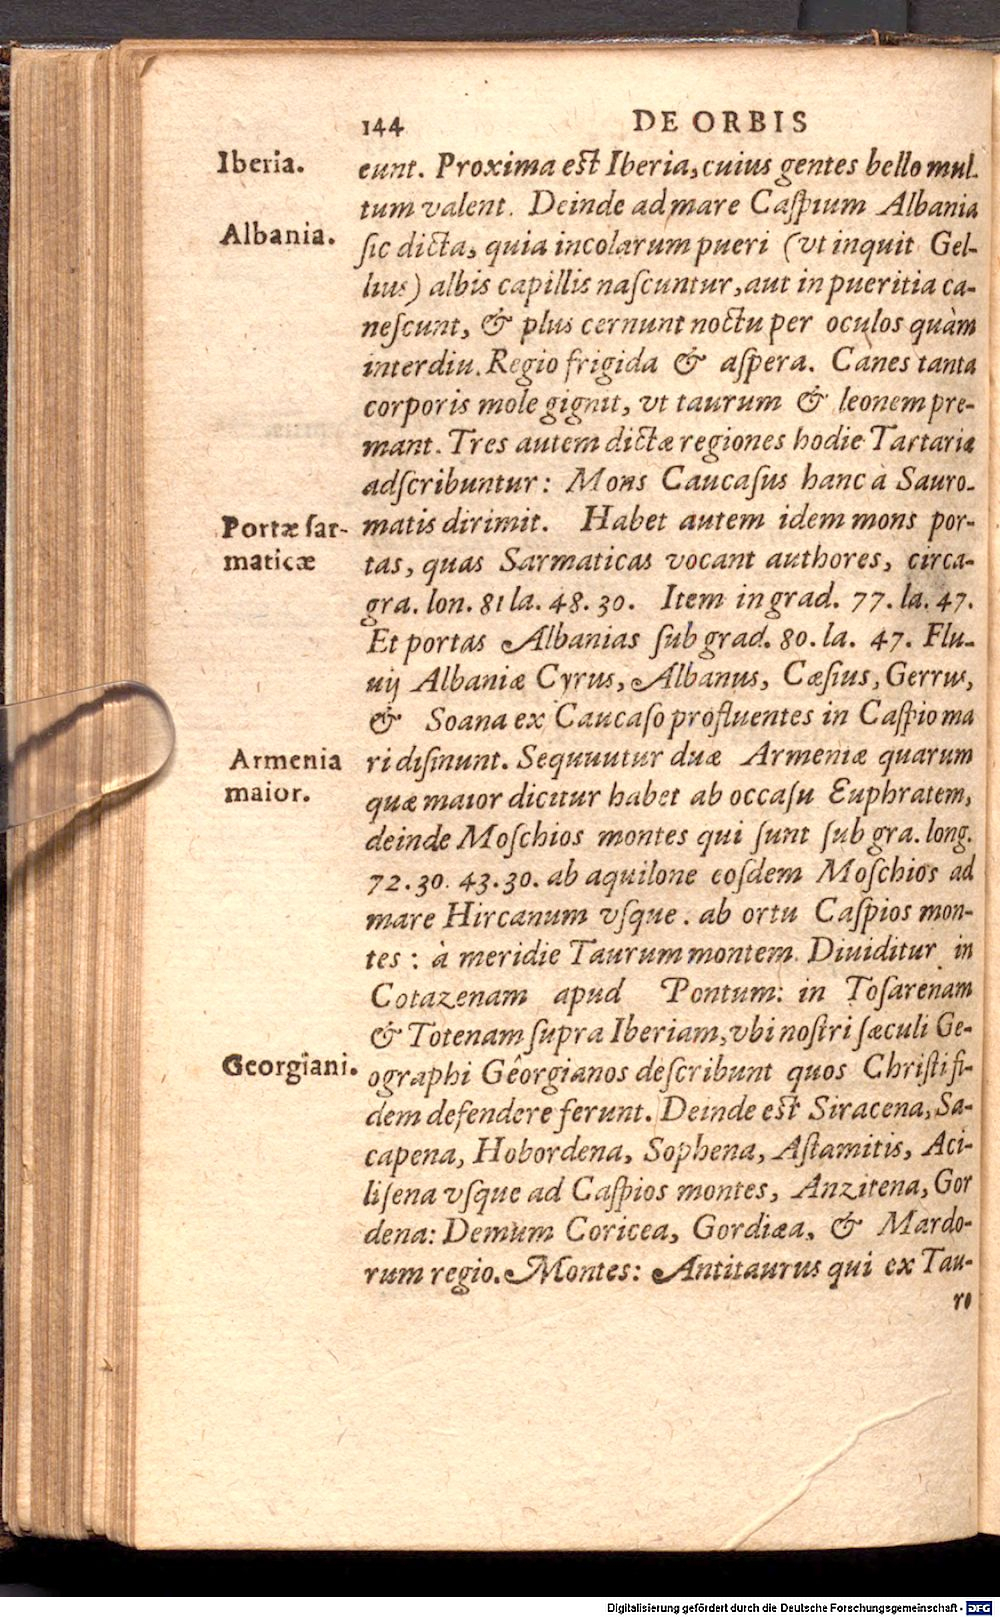 144 DE ORBIS
Iberia.
eunt. Proxima est Iberia, cuius gentes bello mul-
tum valent. Deinde ad mare Caſpium Albania
Albania.
ſic dicta, quia incolarum pueri (vt inquit Gel-
lius) albis capillis naſcuntur, aut in pueritia ca-
neſcunt, & plus cernunt noctu per oculos quàm
interdiu. Regio frigida & aſpera. Canes tanta
corporis mole gignit, vt taurum & leonem pre-
mant. Tres autem dictæ regiones hodie Tartariæ
adſcribuntur: Mons Caucaſus hanc à Sauro-
Portæ ſar-
maticæ
matis dirimit. Habet autem idem mons por-
tas, quas Sarmaticas vocant authores, circa-
gra. lon. 81 la. 48. 30. Item in grad. 77. la. 47.
Et portas Albanias ſub grad. 80. la. 47. Flu-
uij Albaniæ Cyrus, Albanus, Cæſius, Gerrus,
& Soana ex Caucaſo profluentes in Caſpio ma
Armenia
maior.
ri diſinunt. Sequuutur duæ Armeniæ quarum
quæ maior dicitur habet ab occaſu Euphratem,
deinde Moſchios montes qui ſunt ſub gra. long.
72. 30. 43. 30. ab aquilone eoſdem Moſchios ad
mare Hircanum vſque. ab ortu Caſpios mon-
tes: à meridie Taurum montem. Diuiditur in
Cotazenam apud Pontum: in Toſarenam
& Totenam ſupra Iberiam, vbi noſtri ſæculi Ge-
Georgiani.
ographi Gêorgianos deſcribunt quos Chriſti fi-
dem defendere ferunt. Deinde est Siracena, Sa-
capena, Hobordena, Sophena, Aſtamitis, Aci-
liſena vſque ad Caſpios montes, Anzitena, Gor
dena: Demum Coricea, Gordiæa, & Mardo-
rum regio. Montes: Antitaurus qui ex Tau-
ro
Digitalisierung gefördert durch die Deutsche Forschungsgemeinschaft - DFG